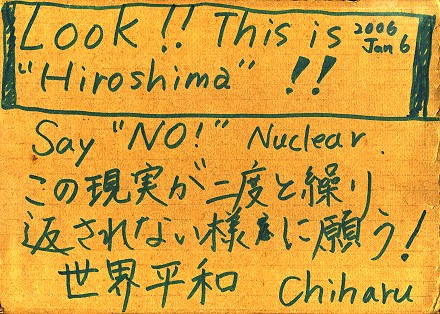 Look!! This is 2006 Jan 6
"Hiroshima" !!
Say "NO!" Nuclear.
この現実が二度と繰り
返されない様に願う!
世界平和 Chiharu